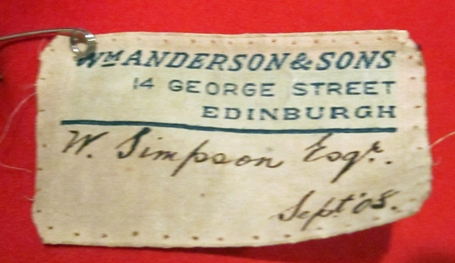 Wm ANDERSON & SONS
14 GEORGE STREET
EDINBURGH
W. Simpson Esqr.
Sept '08.